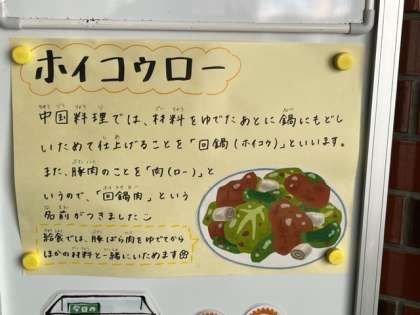 ホイコウロー
中国料理では、材料をゆでたあとに鍋にもどし
いためて仕上げることを「回鍋(ホイコウ)」といいます。
また、豚肉のことを「肉(ロー)」と
いうので、「回鍋肉」という
名前がつきました
給食では、豚ばら肉をゆでてから
ほかの材料と一緒にいためます